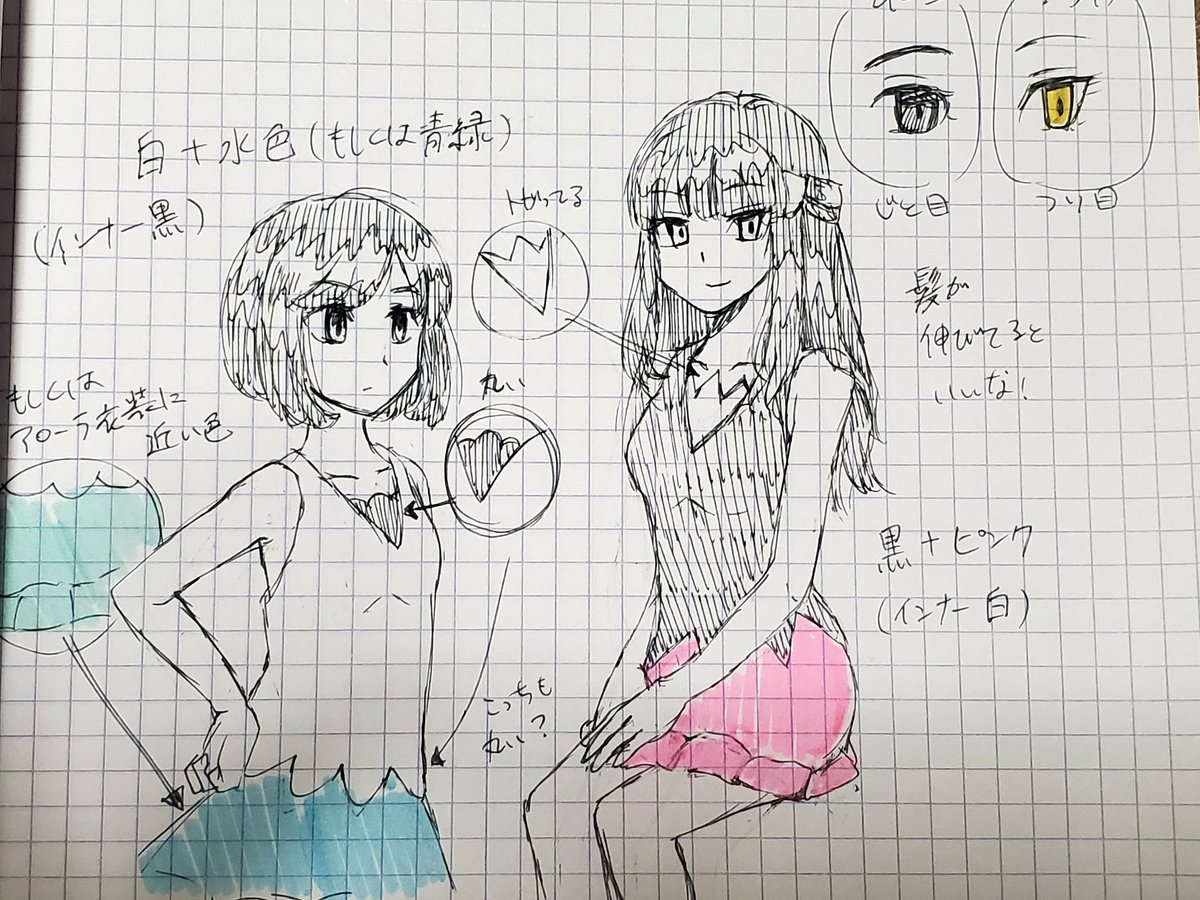 白+水色(もしくは青緑)
(インナー黒)
トガってる
じと目
つり目
髪が
伸びてると
いいな!
もしくは
アローラ衣装に
近い色
丸い
黒+ピンク
(インナー白)
こっちも
丸い?